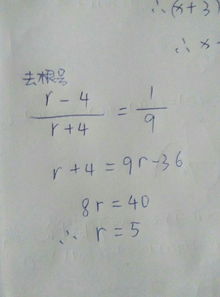 ∴(x+3)
∴ x-
去根号
r-4/r+4 = 1/9
r+4 = 9r-36
8r = 40
∴ r = 5